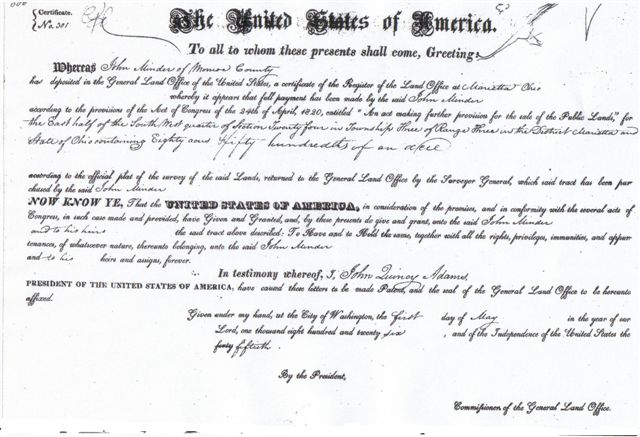 Certificate.
No. 301
The United States of America.
To all to whom these presents shall come, Greeting:
Whereas John Minder of Monroe County
has deposited in the General Land Office of the United States, a certificate of the Register of the Land Office at Marietta Ohio
whereby it appears that full payment has been made by the said John Minder
according to the provisions of the Act of Congress of the 24th of April, 1820, entitled "An act making further provision for the sale of the Public Lands," for
the East half of the South West quarter of Section Twenty four in Township Three of Range Three in the District Marietta and
State of Ohio containing Eighty and Fifty hundredths of an acre
according to the official plat of the survey of the said Lands, returned to the General Land Office by the Surveyor General, which said tract has been pur
chased by the said John Minder
NOW KNOW YE, That the UNITED STATES OF AMERICA, in consideration of the premises, and in conformity with the several acts of
Congress, in such case made and provided, have Given and Granted, and, by these presents do give and grant, unto the said John Minder
and to his heirs the said tract above described: To Have and to Hold the same, together with all the rights, privileges, immunities, and appur
tenances, of whatsoever nature, thereunto belonging, unto the said John Minder
and to his heirs and assigns, forever.
In testimony whereof, I, John Quincy Adams,
PRESIDENT OF THE UNITED STATES OF AMERICA, have caused these letters to be made Patent, and the seal of the General Land Office to be hereunto
affixed.
Given under my hand, at the City of Washington, the first day of May in the year of our
Lord, one thousand eight hundred and twenty six, and of the Independence of the United States the
forty fiftieth.
By the President,
Commissioner of the General Land Office.